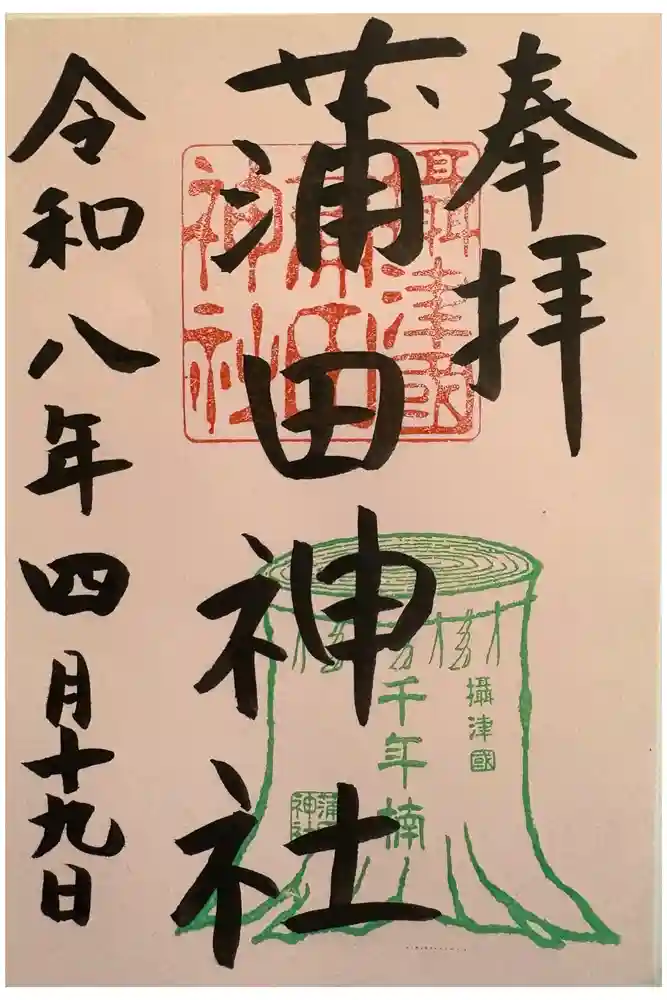 奉拝
攝津國
蒲田
神社
蒲田神社
攝津國
千年楠
蒲田
神社
令和八年四月十九日